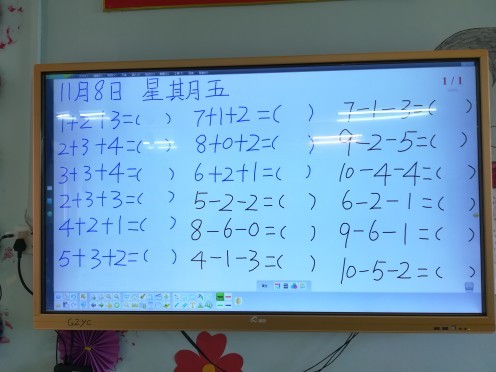 11月8日 星期五
1/1
1+2+3=( ) 7+1+2=( ) 7-1-3=( )
2+3+4=( ) 8+0+2=( ) 9-2-5=( )
3+3+4=( ) 6+2+1=( ) 10-4-4=( )
2+3+3=( ) 5-2-2=( ) 6-2-1=( )
4+2+1=( ) 8-6-0=( ) 9-6-1=( )
5+3+2=( ) 4-1-3=( ) 10-5-2=( )
G2YC